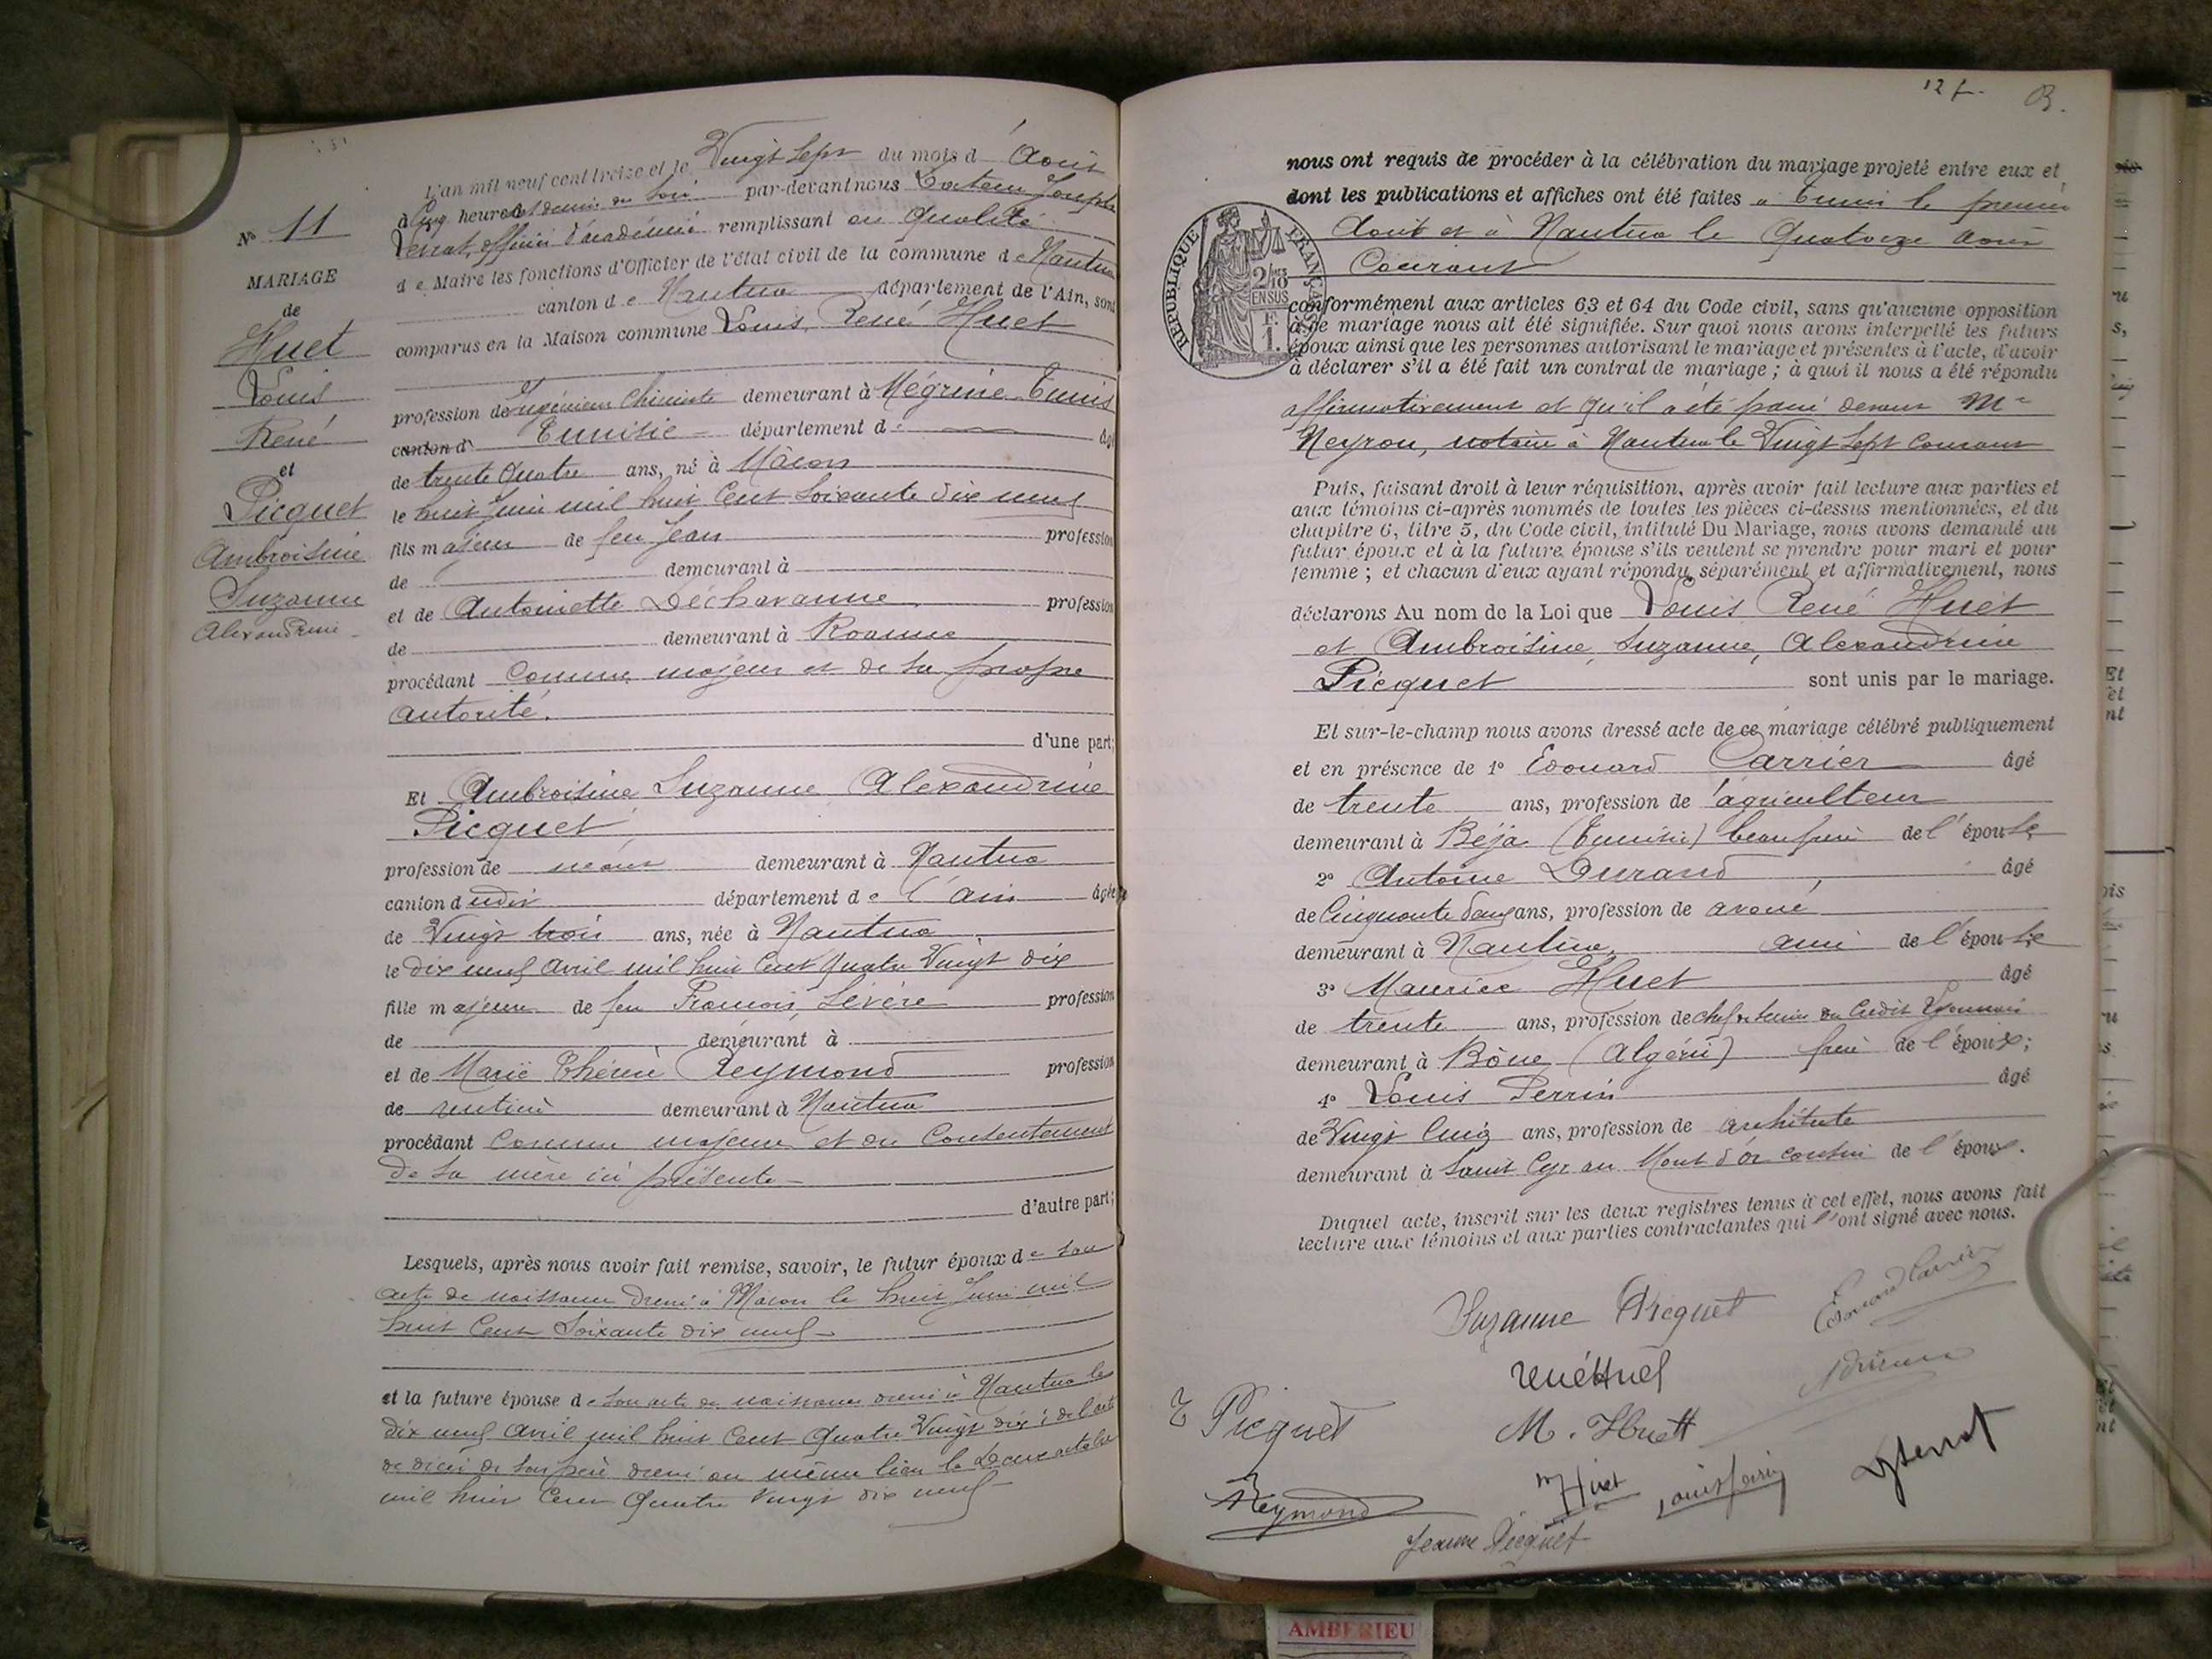 L'an mil neuf cent treize et le Vingt Sept du mois d' Août
à Cinq heures et demie du Soir par-devant nous Docteur Joseph
officier d'académie remplissant en Qualité
de Maire les fonctions d'Officier de l'état civil de la commune de Nantua
canton de Nantua département de l'Ain, sont
comparus en la Maison commune Louis, René Huet
profession de Ingénieur Chimiste demeurant à Mégrine Tunis
canton d Tunisie département d âgé
de trente quatre ans, né à Mâcon
le huit Juin mil huit Cent Soixante dix neuf
fils majeur de feu Jean profession
de demeurant à
et de Antoinette Déchavanne profession
de demeurant à Roanne
procédant Comme majeur et de Sa propre
autorité.
d'une part;
Et Ambroisine Suzanne Alexandrine
Picquet
profession de néant demeurant à Nantua
canton dudit département de l'Ain âgée
de Vingt trois ans, née à Nantua
le dix neuf avril mil huit Cent Quatre Vingt dix
fille majeure de feu François, Sévère profession
de demeurant à
et de Marie Thérèse Reymond profession
de rentière demeurant à Nantua
procédant Comme majeure et du Consentement
de Sa mère ici présente
d'autre part;
Lesquels, après nous avoir fait remise, savoir, le futur époux de son
acte de naissance dressé à Mâcon le huit Juin mil
huit Cent Soixante dix neuf
et la future épouse de son acte de naissance dressé à Nantua le
dix neuf avril mil huit Cent Quatre Vingt dix; de l'acte
de décès de Son père dressé au même lieu le
mil huit Cent Quatre Vingt dix neuf
N° 11
MARIAGE
de
Huet
Louis
René
et
Picquet
Ambroisine
Suzanne
Alexandrine
nous ont requis de procéder à la célébration du mariage projeté entre eux et
dont les publications et affiches ont été faites à Tunis le premier
Août et à Nantua le Quatorze Août
Courant
RÉPUBLIQUE FRANÇAISE
2/10 EN SUS
F. 1.
conformément aux articles 63 et 64 du Code civil, sans qu'aucune opposition
à ce mariage nous ait été signifiée. Sur quoi nous avons interpellé les futurs
époux ainsi que les personnes autorisant le mariage et présentes à l'acte, d'avoir
à déclarer s'il a été fait un contrat de mariage ; à quoi il nous a été répondu
affirmativement et qu'il a été passé devant Me
Neyron, notaire à Nantua le Vingt Sept Courant
Puis, faisant droit à leur réquisition, après avoir fait lecture aux parties et
aux témoins ci-après nommés de toutes les pièces ci-dessus mentionnées, et du
chapitre 6, titre 5, du Code civil, intitulé Du Mariage, nous avons demandé au
futur époux et à la future épouse s'ils veulent se prendre pour mari et pour
femme ; et chacun d'eux ayant répondu séparément et affirmativement, nous
déclarons Au nom de la Loi que Louis René Huet
et Ambroisine, Suzanne, Alexandrine
Picquet sont unis par le mariage.
Et sur-le-champ nous avons dressé acte de ce mariage célébré publiquement
et en présence de 1° Edouard Carrier âgé
de trente ans, profession de agriculteur
demeurant à Béja (Tunisie) beau frère de l'épouse
2° Antoine Durand âgé
de Cinquante ans, profession de avoué
demeurant à Nantua, ami de l'épouse
3° Maurice Huet âgé
de trente ans, profession de chef de service du Crédit Lyonnais
demeurant à Bône (Algérie) frère de l'époux;
4° Louis Perrin âgé
de Vingt Cinq ans, profession de architecte
demeurant à Saint Cyr au Mont d'Or cousin de l'époux.
Duquel acte, inscrit sur les deux registres tenus à cet effet, nous avons fait
lecture aux témoins et aux parties contractantes qui l'ont signé avec nous.
Suzanne Picquet
Edouard Carrier
René Huet
Picquet
M. Huet
Huet
Louis Perrin
Reymond
Jeanne Picquet
AMBERIEU